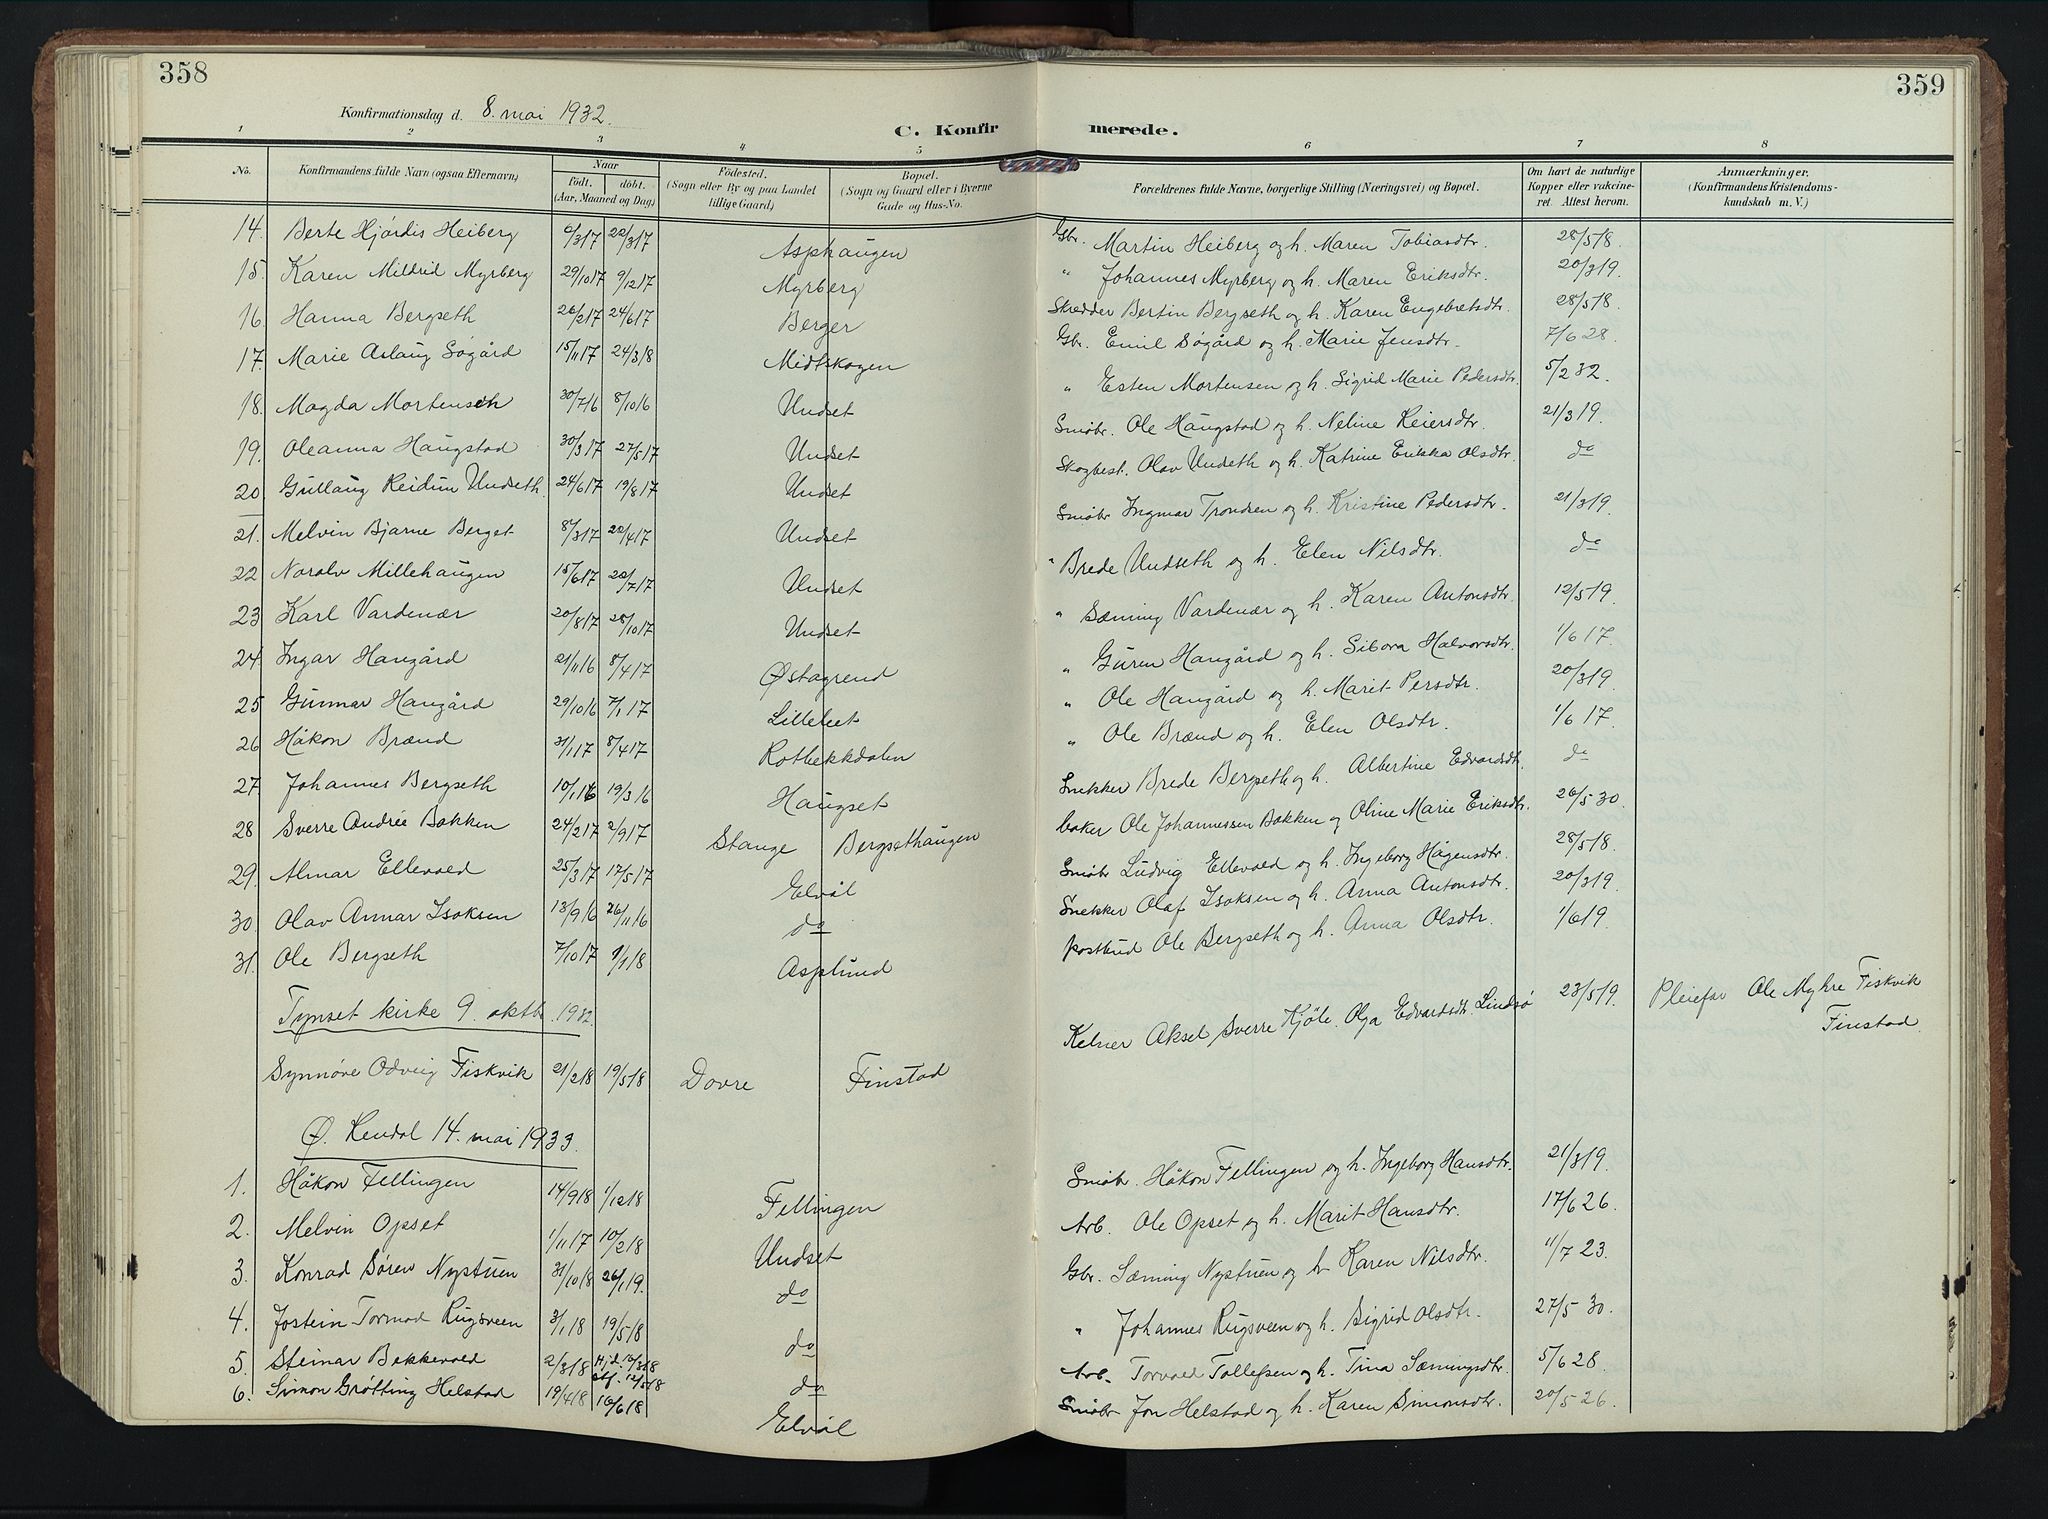 358
359
Konfirmationsdag d. 8. mai 1932.
C. Konfirmerede.
1 2 3 4 5 6 7 8
No. Konfirmandens fulde Navn (ogsaa Efternavn) Naar født. døbt. (Aar, Maaned og Dag) Födested. (Sogn eller By og paa Landet tillige Gaard) Bopæl. (Sogn og Gaard eller i Byerne Gade og Hus-No. Forældrenes fulde Navne, borgerlige Stilling (Næringsvei) og Bopæl. Om havt de naturlige Kopper eller vakcineret. Attest herom. Anmærkninger. (Konfirmandens Kristendomskundskab m. V.)
14. Berte Hjørdis Heiberg 6/3 17 22/3 17 Asphaugen Gbr. Martin Heiberg og h. Maren Tobiasdtr. 28/5 18.
15. Karen Mildrid Myrberg 29/10 17 9/12 17 Myrberg " Johannes Myrberg og h. Maren Eriksdtr. 20/3 19.
16. Hanna Bergseth 26/2 17 24/6 17 Berger Skredder Bertin Bergseth og h. Karen Engebretsdtr. 28/5 18.
17. Marie Aslaug Søgård 15/11 17 24/3 18 Midtskogen Gbr. Emil Søgård og h. Marie Jensdtr. 7/6 28.
18. Magda Mortensen 30/7 16 8/10 16 Undset " Esten Mortensen og h. Sigrid Marie Pedersdtr. 5/2 32.
19. Oleanna Haugstad 30/3 17 27/5 17 Undset Småbr. Ole Haugstad og h. Neline Reiersdtr. 21/3 19.
20. Gullaug Reidun Undseth 24/6 17 19/8 17 Undset Skogbest. Olav Undseth og h. Katrine Erikka Olsdtr. do
21. Melvin Bjarne Berget 8/3 17 22/4 17 Undset Småbr Ingmar Trondsen og h. Kristine Pedersdtr. 21/3 19.
22 Noralv Millehaugen 15/6 17 22/7 17 Undset " Brede Undseth og h. Elen Nilsdtr. do
23 Karl Vardenær 20/8 17 28/10 17 Undset " Sæming Vardenær og h. Karen Antonsdtr. 12/5 19.
24. Ingar Haugård 21/11 16 8/4 17 Østagrend " Guren Haugård og h. Sibora Halvorsdtr. 1/6 17.
25 Gunnar Haugård 29/10 16 7/1 17 Lilleleet " Ole Haugård og h. Marit Persdtr. 20/3 19.
26 Håkon Brænd 31/1 17 8/4 17 Rotbekkdalen " Ole Brænd og h. Elen Olsdtr. 1/6 17.
27. Johannes Bergseth 10/1 16 19/3 16 Haugset Snekker Brede Bergseth og h. Albertine Edvardsdtr. do
28 Sverre Andrée Bakken 24/2 17 2/9 17 Stange Bergsethaugen baker Ole Johannessen Bakken og Oline Marie Eriksdtr. 26/5 30.
29. Almar Ellevold 25/3 17 17/5 17 Elvål Småbr Ludvig Ellevold og h. Ingeborg Hågensdtr. 28/5 18.
30. Olav Annar Isaksen 13/9 16 26/11 16 do Snekker Olaf Isaksen og h. Anna Antonsdtr. 20/3 19.
31. Ole Bergseth 7/10 17 9/1 18 Asplund postbud Ole Bergseth og h. Anna Olsdtr. 1/6 19.
Tynset kirke 9. oktbr. 1932.
Synnøve Odveig Fiskvik 21/2 18 19/5 18 Dovre Finstad Kelner Aksel Sverre Kjøle. Olga Edvardsdtr. Lindsø 23/5 19. Pleiefar Ole Myhre Fiskvik Finstad.
Ø. Rendal 14. mai 1933.
1. Håkon Fellingen 14/9 18 1/12 18 Fellingen Småbr. Håkon Fellingen og h. Ingeborg Hansdtr. 21/3 19.
2. Melvin Opset 1/11 17 10/2 18 Undset Arb. Ole Opset og h. Marit Hansdtr. 17/6 26.
3. Konrad Søren Nystuen 31/10 18 26/1 19. do Gbr. Sæming Nystuen og h Karen Nilsdtr. 11/7 23.
4. Jostein Tormod Rugsveen 3/1 18 19/5 18 do " Johannes Rugsveen og h. Sigrid Olsdtr. 27/5 30.
5. Steinar Bekkevold 2/3 18 Hjd. 12/3 18 stf. 12/5 18 do Arb. Torvald Tollefsen og h. Tina Sæmingsdtr. 5/6 28.
6. Simon Grøtting Helstad 19/4 18 16/6 18 Elvål Småbr Jon Helstad og h. Karen Simonsdtr. 20/5 26.